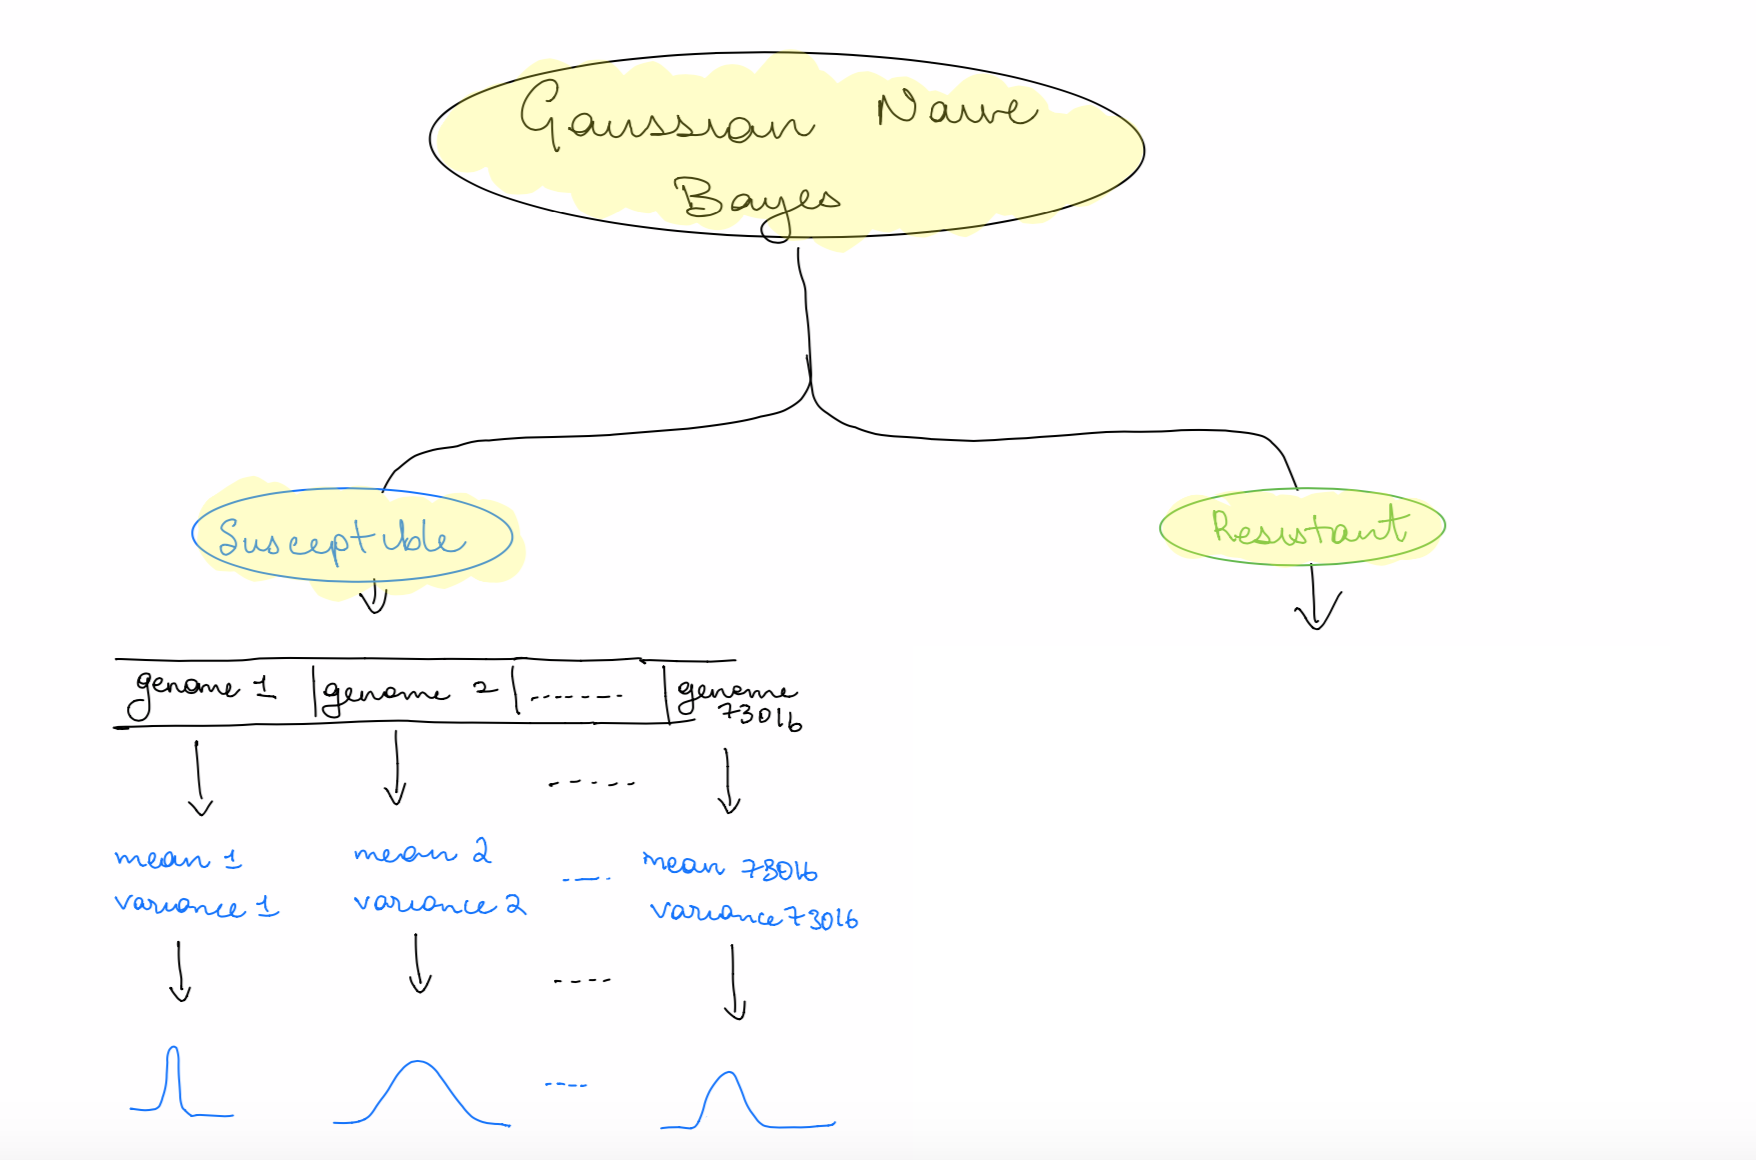 Gaussian Naive
Bayes
Susceptible
Resistant
genome 1 genome 2 ....... genome
73016
.....
mean 1 mean 2 .... mean 73016
variance 1 variance 2 variance 73016
....
....